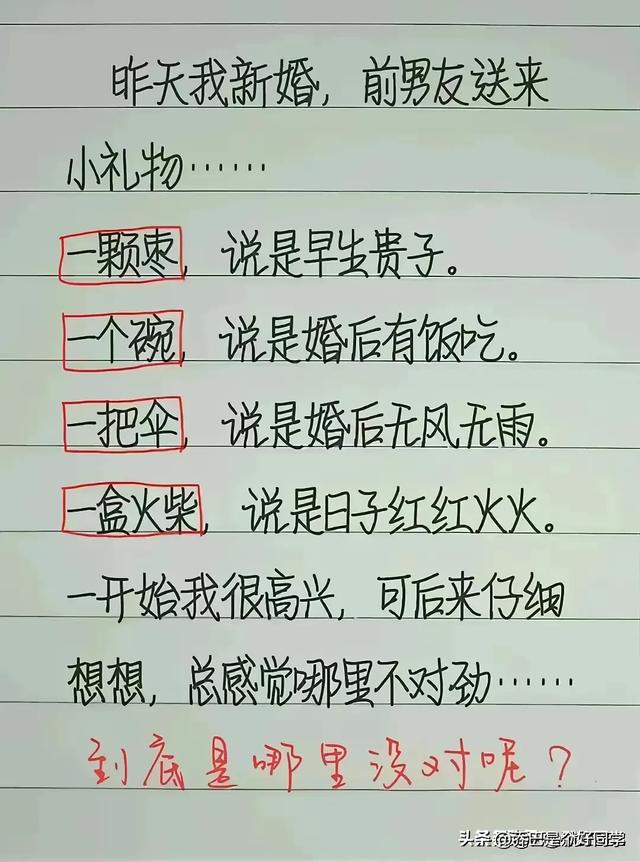 昨天我新婚，前男友送来
小礼物……
一颗枣，说是早生贵子。
一个碗，说是婚后有饭吃。
一把伞，说是婚后无风无雨。
一盒火柴，说是日子红红火火。
一开始我很高兴，可后来仔细
想想，总感觉哪里不对劲……
到底是哪里没对呢？